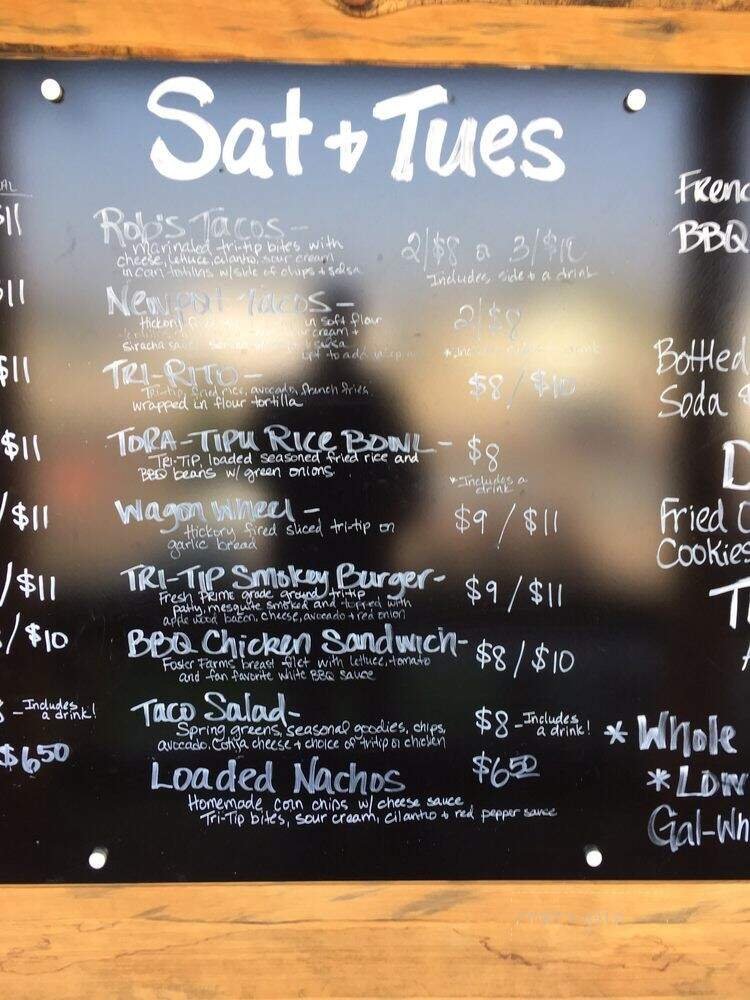 Sat + Tues
Rob's Tacos -
marinated tri-tip bites with
cheese, lettuce, cilantro, sour cream
in corn tortillas w/side of chips + salsa
2/$8 or 3/$12
Includes side + a drink
Newport Tacos -
Hickory in soft flour
cream +
siracha salsa
opt to add
2/$8
TRI-RITO -
Tri-tip, fried rice, avocado, french fries
wrapped in flour tortilla
$8 / $10
TORA-TIPU RICE BOWL -
TRI-TIP, loaded seasoned fried rice and
BBQ beans w/ green onions.
$8
*Includes a
drink
Wagon Wheel -
Hickory fired sliced tri-tip on
garlic bread
$9 / $11
TRI-TIP Smokey Burger -
Fresh PRIME grade ground tri-tip
patty, mesquite smoked and topped with
apple wood bacon, cheese, avocado + red onion
$9 / $11
BBQ Chicken Sandwich -
Foster Farms breast filet with lettuce, tomato
and fan favorite white BBQ sauce
$8 / $10
Taco Salad -
Spring greens, seasonal goodies, chips,
avocado, Cotija cheese + choice of tritip or chicken
$8 - Includes
a drink!
Loaded Nachos
Homemade corn chips w/ cheese sauce
Tri-Tip bites, sour cream, cilantro + red pepper sauce
$6.50
$11
$11
$11
$11
/ $11
/ $11
/ $10
- Includes
a drink!
$6.50
Frenc
BBQ
Bottled
Soda
D
Fried
Cookies
T
* Whole
* Low
Gal-Wh